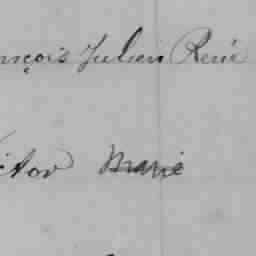 ançois Julien René
ictor Marie